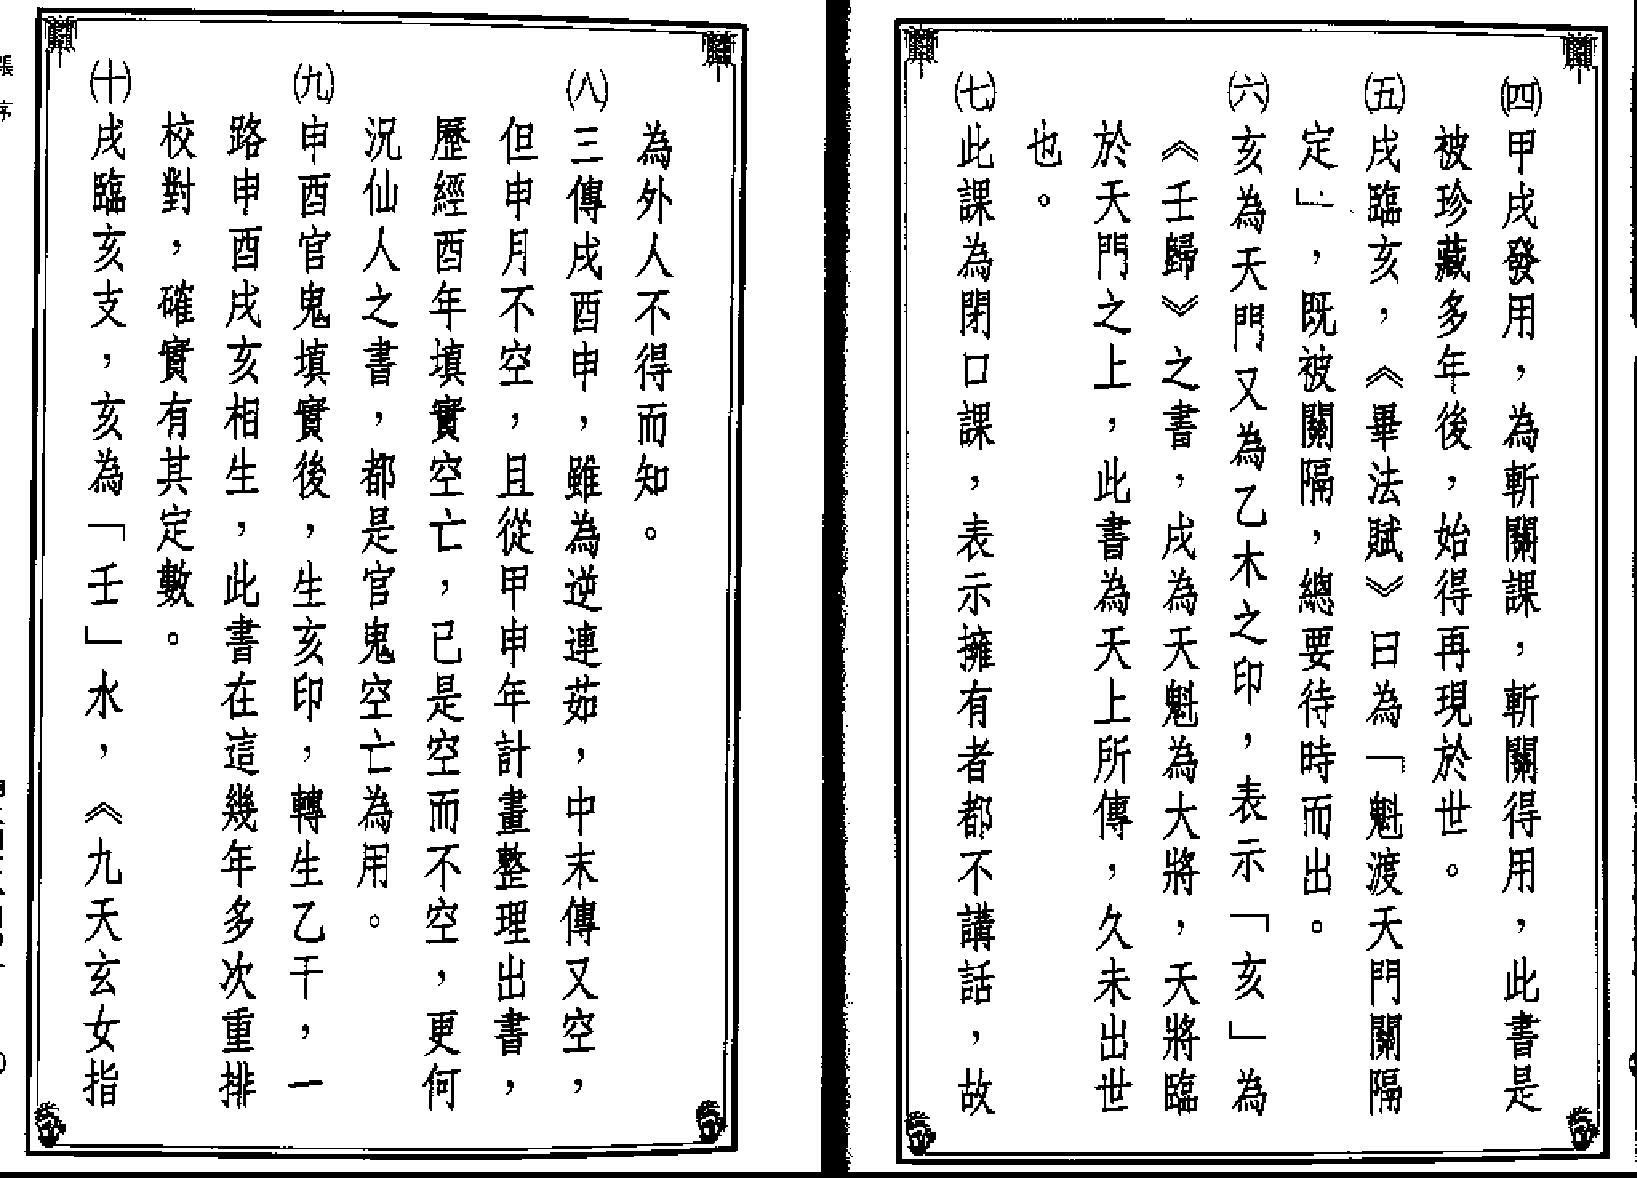 ㈣甲戌發用，為斬關課，斬關得用，此書是
被珍藏多年後，始得再現於世。
㈤戌臨亥，《畢法賦》曰為「魁渡天門關隔
定」，既被關隔，總要待時而出。
㈥亥為天門又為乙木之印，表示「亥」為
《壬歸》之書，戌為天魁為大將，天將臨
於天門之上，此書為天上所傳，久未出世
也。
㈦此課為閉口課，表示擁有者都不講話，故
為外人不得而知。
㈧三傳戌酉申，雖為逆連茹，中末傳又空，
但申月不空，且從甲申年計畫整理出書，
歷經酉年填實空亡，已是空而不空，更何
況仙人之書，都是官鬼空亡為用。
㈨申酉官鬼填實後，生亥印，轉生乙干，一
路申酉戌亥相生，此書在這幾年多次重排
校對，確實有其定數。
㈩戌臨亥支，亥為「壬」水，《九天玄女指
張序